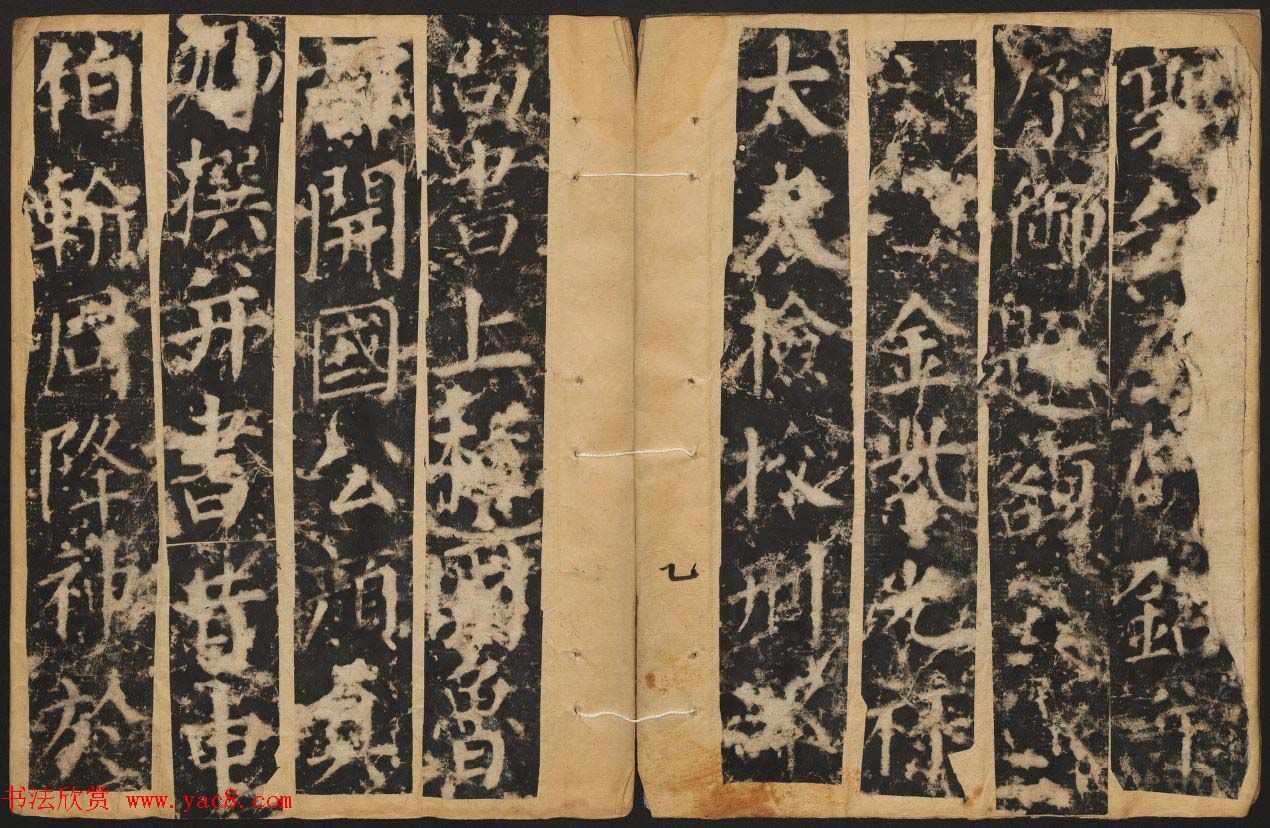 銘并
序御題額
金紫光祿
大夫檢校刑部
尚書上柱國魯
郡開國公顏真
卿撰并書昔申
伯翰周降神於
书法欣赏 www.yac8.com